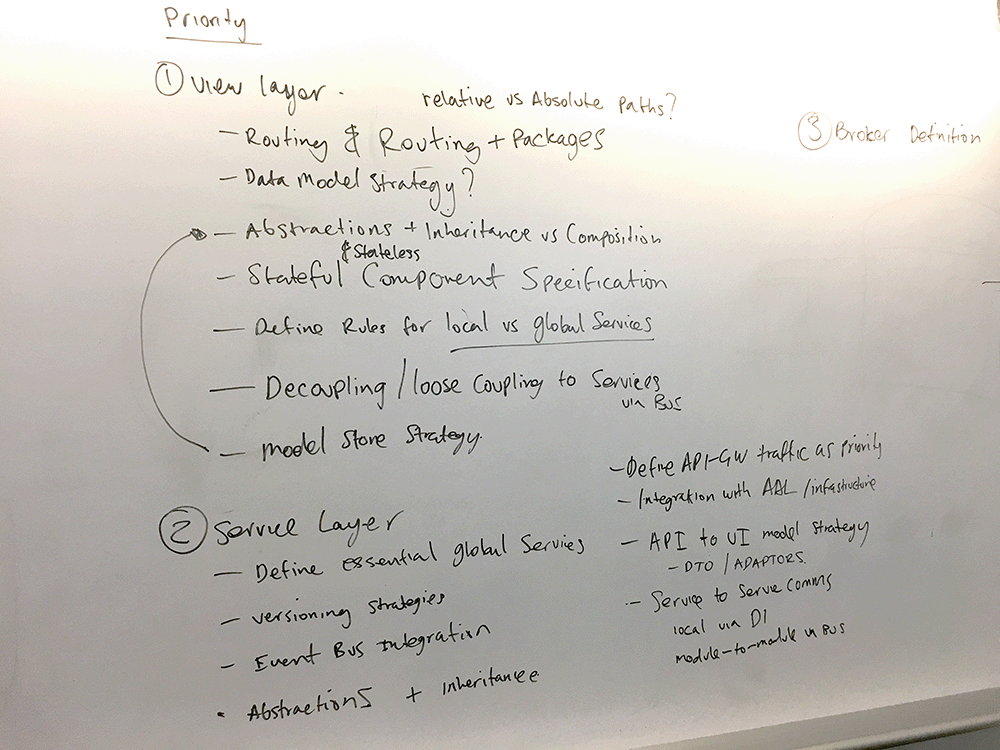 Priority
① View Layer.
relative vs Absolute Paths?
- Routing & Routing + Packages
- Data Model Strategy?
- Abstractions + Inheritance vs Composition
& Stateless
- Stateful Component Specification
- Define Rules for local vs global Services
- Decoupling / loose Coupling to Services
via Bus
- Model Store Strategy.
② Service Layer
- Define essential global Services
- Versioning Strategies
- Event Bus Integration
· Abstractions + Inheritance
- Define API-GW traffic as Priority
- Integration with /infastructure
- API to UI model strategy
- DTO / ADAPTORS.
- Service to Servie Comms
local via DI
module-to-module via Bus
③ Broker Definition